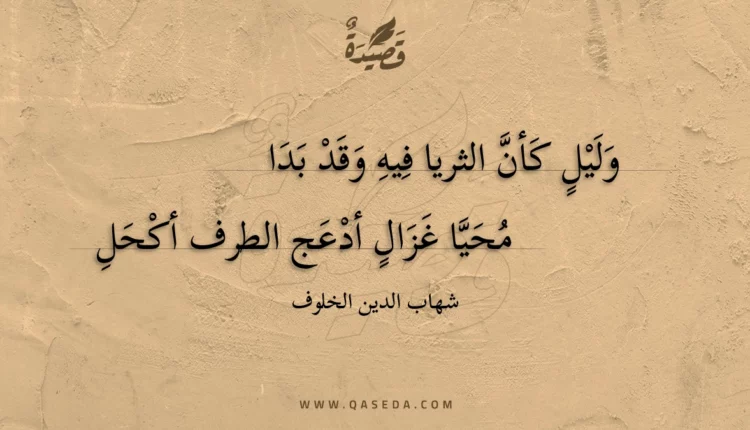 قَصِيْدَةٌ
وَلَيْلٍ كَأنَّ الثريا فِيهِ وَقَدْ بَدَا
مُحَيَّا غَزَالٍ أدْعَج الطرف أكْحَلِ
شهاب الدين الخلوف
WWW.QASEDA.COM